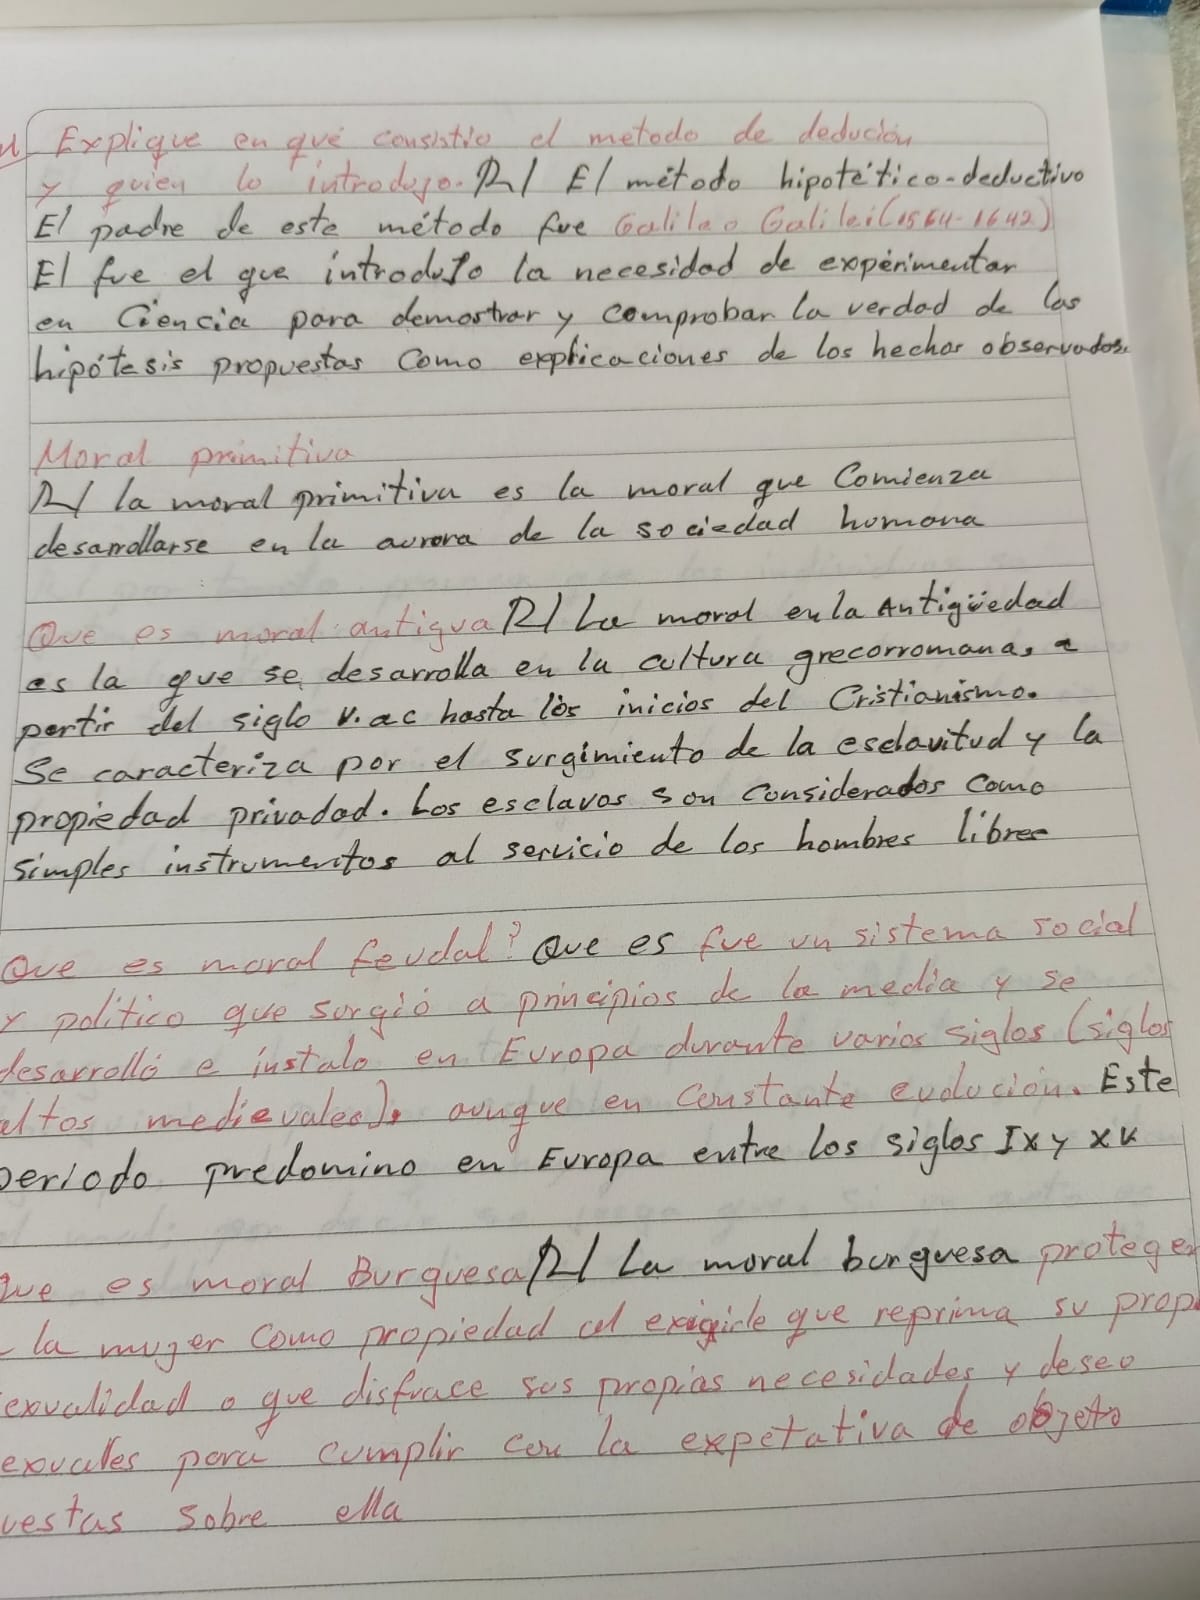 Explique en qué consistio el metodo de dedución
y quien lo introdujo. R/ El método hipotético-deductivo
El padre de este método fue Galileo Galilei (1564-1642)
El fue el que introdujo la necesidad de experimentar
en Ciencia para demostrar y comprobar la verdad de las
hipótesis propuestas como explicaciones de los hechos observados.
Moral primitiva
R/ la moral primitiva es la moral que Comienza
desarrollarse en la aurora de la sociedad humana
Que es moral antigua R/ La moral en la Antigüedad
es la que se desarrolla en la cultura grecorromana, a
partir del siglo V. ac hasta los inicios del Cristianismo.
Se caracteriza por el surgimiento de la esclavitud y la
propiedad privadad. Los esclavos son considerados como
simples instrumentos al servicio de los hombres libres
Que es moral feudal? Que es fue un sistema social
y político que surgió a principios de la media y se
desarrolló e instalo en Europa durante varios siglos (siglos
altos medievales), aunque en constante evolución. Este
periodo predomino en Europa entre los siglos IX y XV
Que es moral Burguesa R/ La moral burguesa protege
la mujer como propiedad al exigirle que reprima su prop
exualidad o que disfrace sus propias necesidades y deseo
exuales para cumplir con la expetativa de objeto
uestas sobre ella